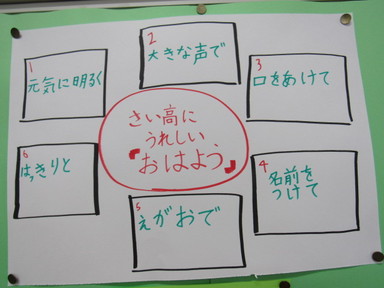 1
元気に明るく
2
大きな声で
3
口をあけて
さい高に
うれしい
『おはよう』
4
名前を
つけて
5
えがおで
6
はっきりと